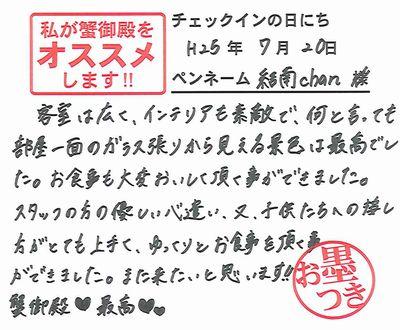 私が蟹御殿を
オススメ
します!!
チェックインの日にち
H25年 7月 20日
ペンネーム 結南chan 様
客室は広く、インテリアも素敵で、何と言っても
部屋一面のガラス張りから見える景色は最高でし
た。お食事も大変おいしく頂く事ができました。
スタッフの方の優しい心遣い、又、子供たちへの接し
方がとても上手で、ゆっくりとお食事を頂く事
ができました。また来たいと思います!!
蟹御殿♥最高♥♥
お墨つき